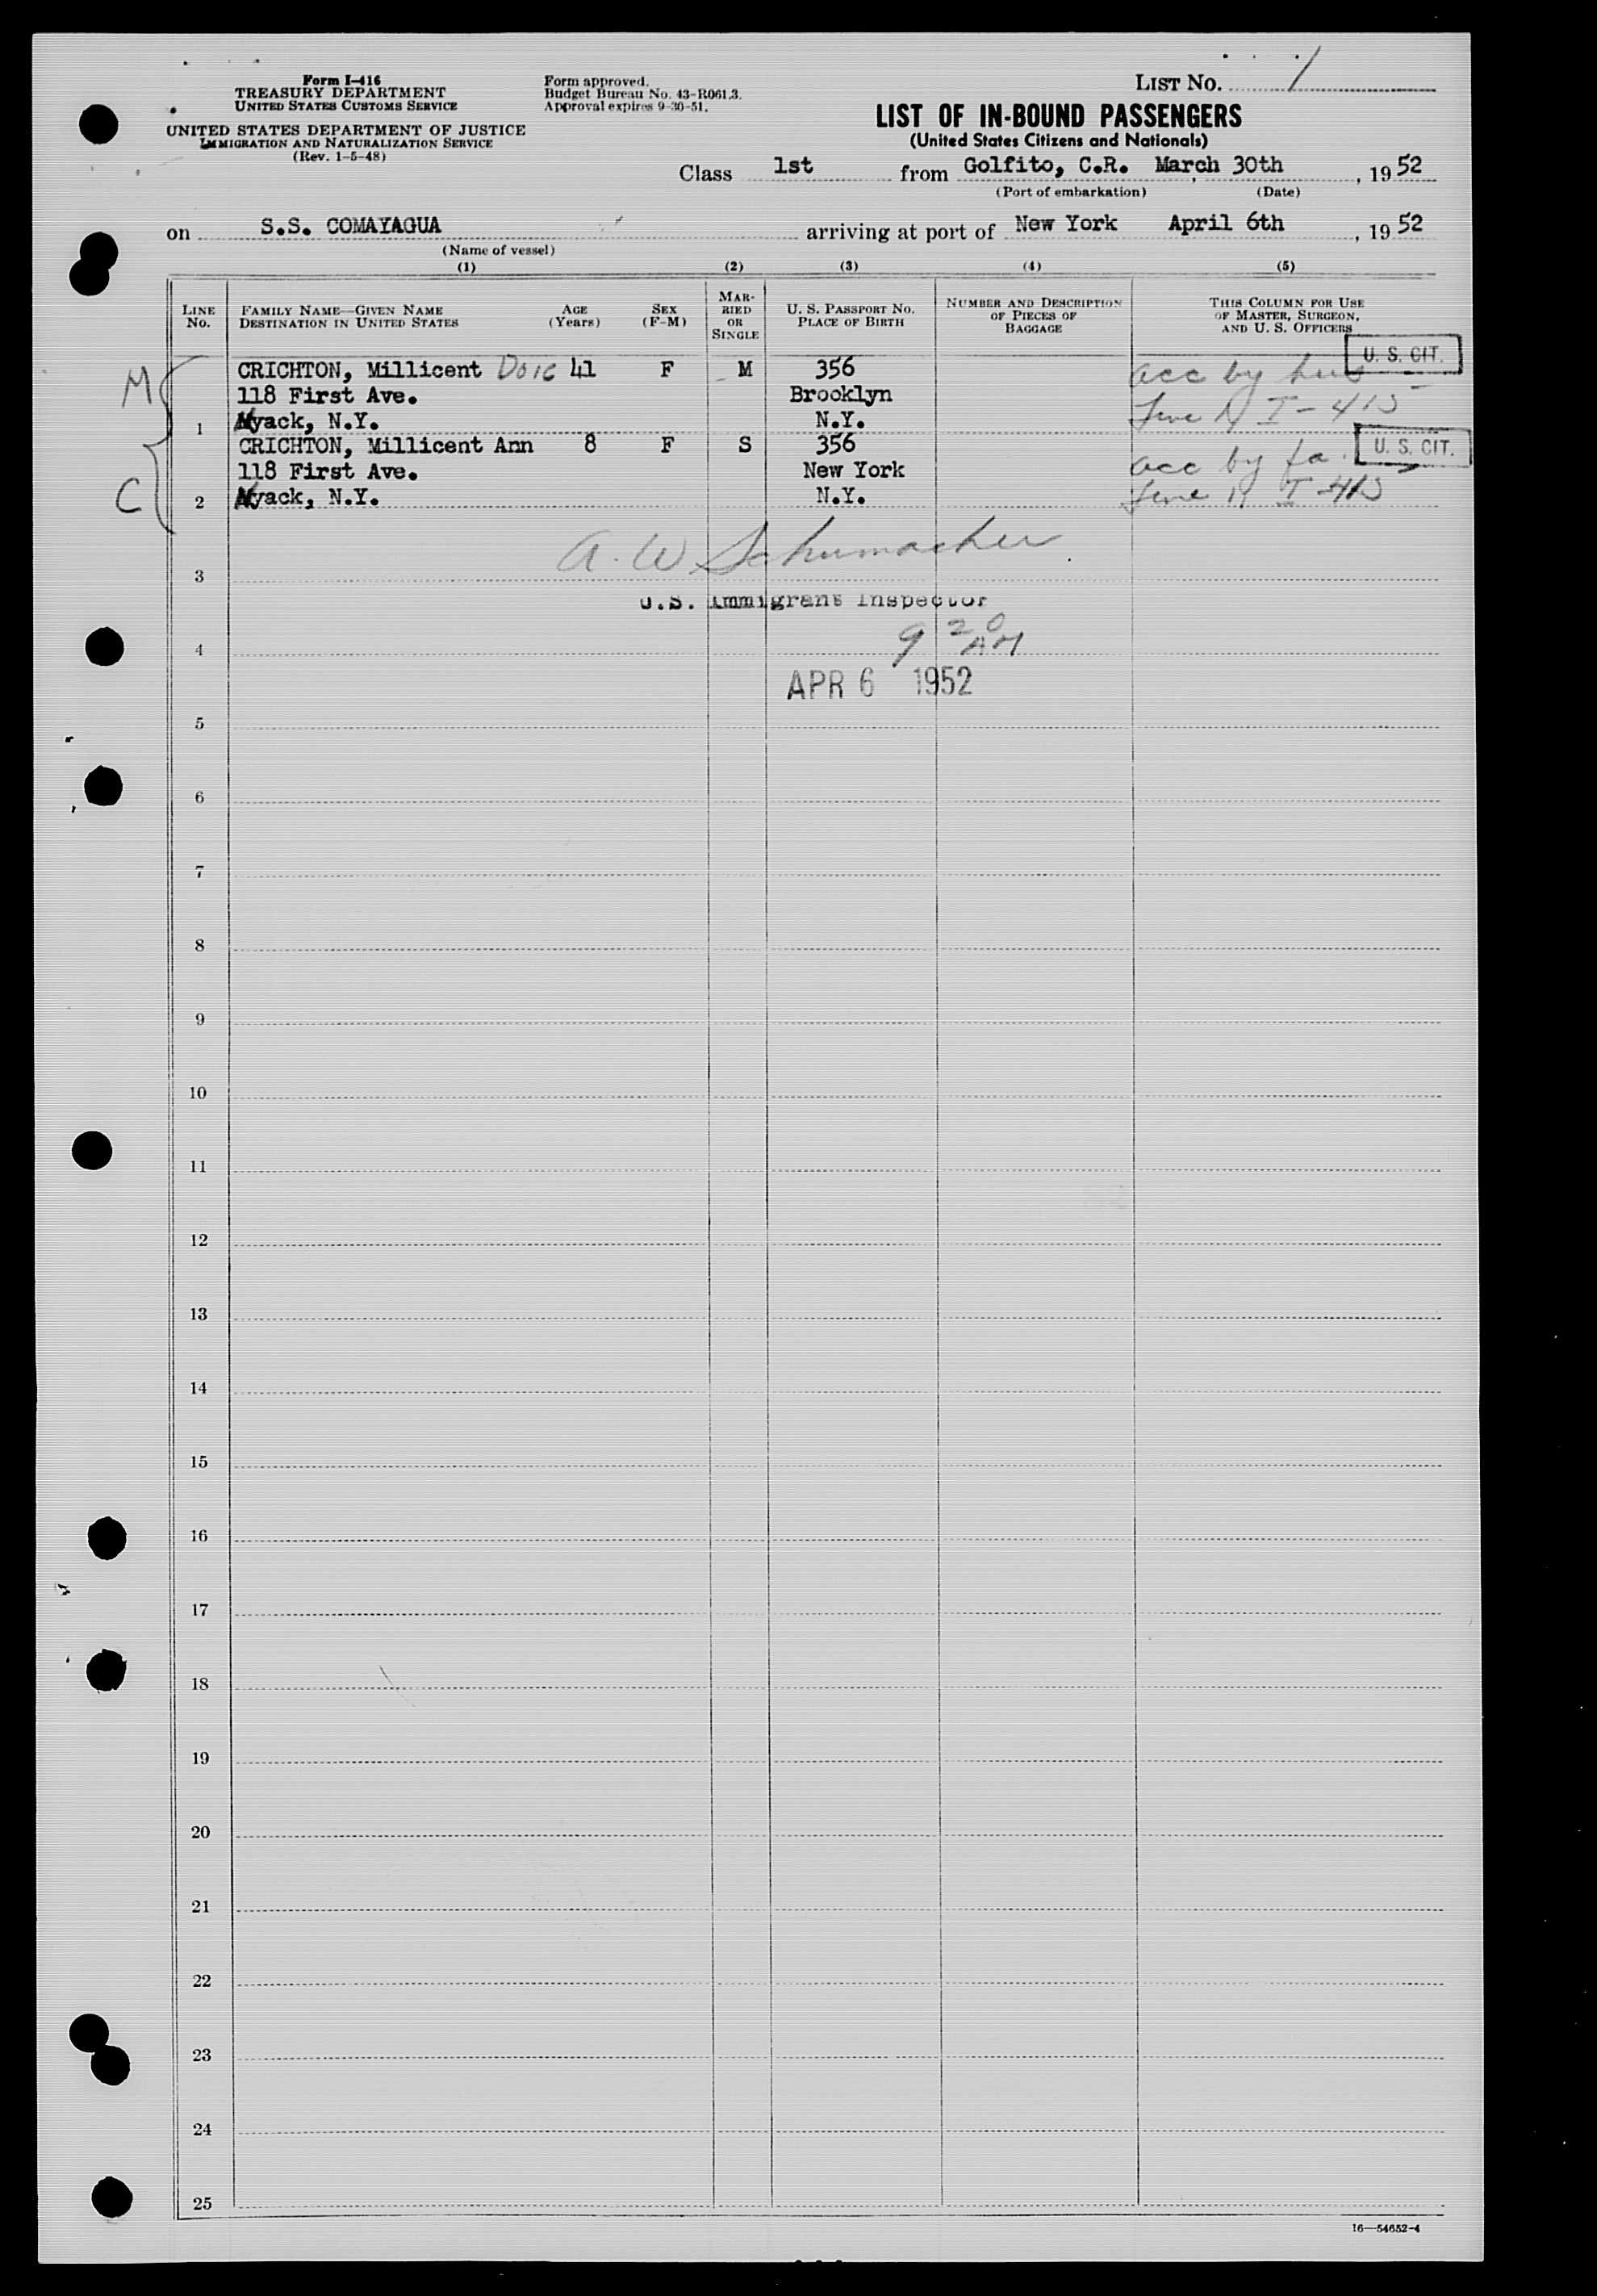 Form I-416
TREASURY DEPARTMENT
UNITED STATES CUSTOMS SERVICE
UNITED STATES DEPARTMENT OF JUSTICE
IMMIGRATION AND NATURALIZATION SERVICE
(Rev. 1-5-48)
Form approved.
Budget Bureau No. 43-R061.3.
Approval expires 9-30-51.
LIST No. 1
LIST OF IN-BOUND PASSENGERS
(United States Citizens and Nationals)
Class 1st from Golfito, C.R. March 30th, 1952
(Port of embarkation) (Date)
on S.S. COMAYAGUA arriving at port of New York April 6th, 1952
(Name of vessel)
(1) (2) (3) (4) (5)
LINE No.
FAMILY NAME—GIVEN NAME
DESTINATION IN UNITED STATES
AGE (Years)
SEX (F-M)
MARRIED OR SINGLE
U. S. PASSPORT No.
PLACE OF BIRTH
NUMBER AND DESCRIPTION OF PIECES OF BAGGAGE
THIS COLUMN FOR USE OF MASTER, SURGEON, AND U. S. OFFICERS
M CRICHTON, Millicent 41 F M 356 acc by hus U. S. CIT.
118 First Ave. Brooklyn
1 Nyack, N.Y. N.Y. I-415
CRICHTON, Millicent Ann 8 F S 356 U. S. CIT.
118 First Ave. New York acc by fa.
C 2 Nyack, N.Y. N.Y. I-415
A. W Schumacher
3
U.S. Immigrant Inspector
9 20 AM
4
APR 6 1952
5
6
7
8
9
10
11
12
13
14
15
16
17
18
19
20
21
22
23
24
25
16—54652-4